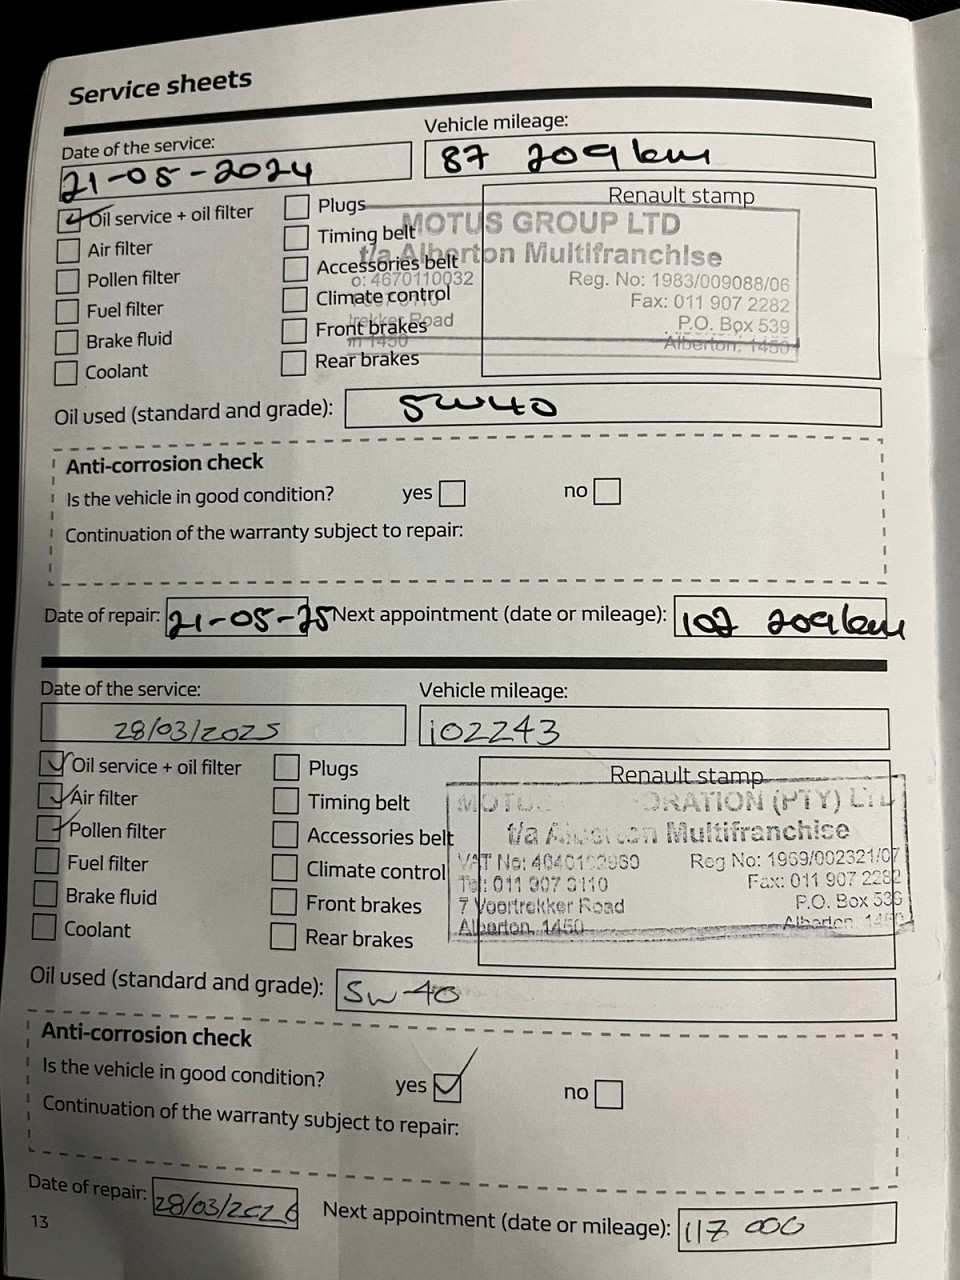 Service sheets
Date of the service: Vehicle mileage:
21-05-2024 87 209 km
Oil service + oil filter Plugs Renault stamp
Air filter Timing belt MOTUS GROUP LTD
Pollen filter Accessories belt t/a Alberton Multifranchise
Fuel filter Climate control o: 4670110032 Reg. No: 1983/009088/06
Brake fluid Front brakes trekker Road Fax: 011 907 2282
Coolant Rear brakes 1450 P.O. Box 539
Alberton, 1450
Oil used (standard and grade): 5W40
Anti-corrosion check
Is the vehicle in good condition? yes no
Continuation of the warranty subject to repair:
Date of repair: 21-05-25 Next appointment (date or mileage): 102 209 km
Date of the service: Vehicle mileage:
28/03/2025 102243
Oil service + oil filter Plugs Renault stamp
Air filter Timing belt ORATION (PTY) LTD
Pollen filter Accessories belt t/a Alberton Multifranchise
Fuel filter Climate control VAT No: Reg No: 1969/002321/07
Brake fluid Front brakes Tel: 011 907 Fax: 011 907 2282
Coolant Rear brakes 7 Voortrekker Road P.O. Box
Alberton, 1450 Alberton,
Oil used (standard and grade): 5W-40
Anti-corrosion check
Is the vehicle in good condition? yes no
Continuation of the warranty subject to repair:
Date of repair: 28/03/2026 Next appointment (date or mileage): 117 000
13